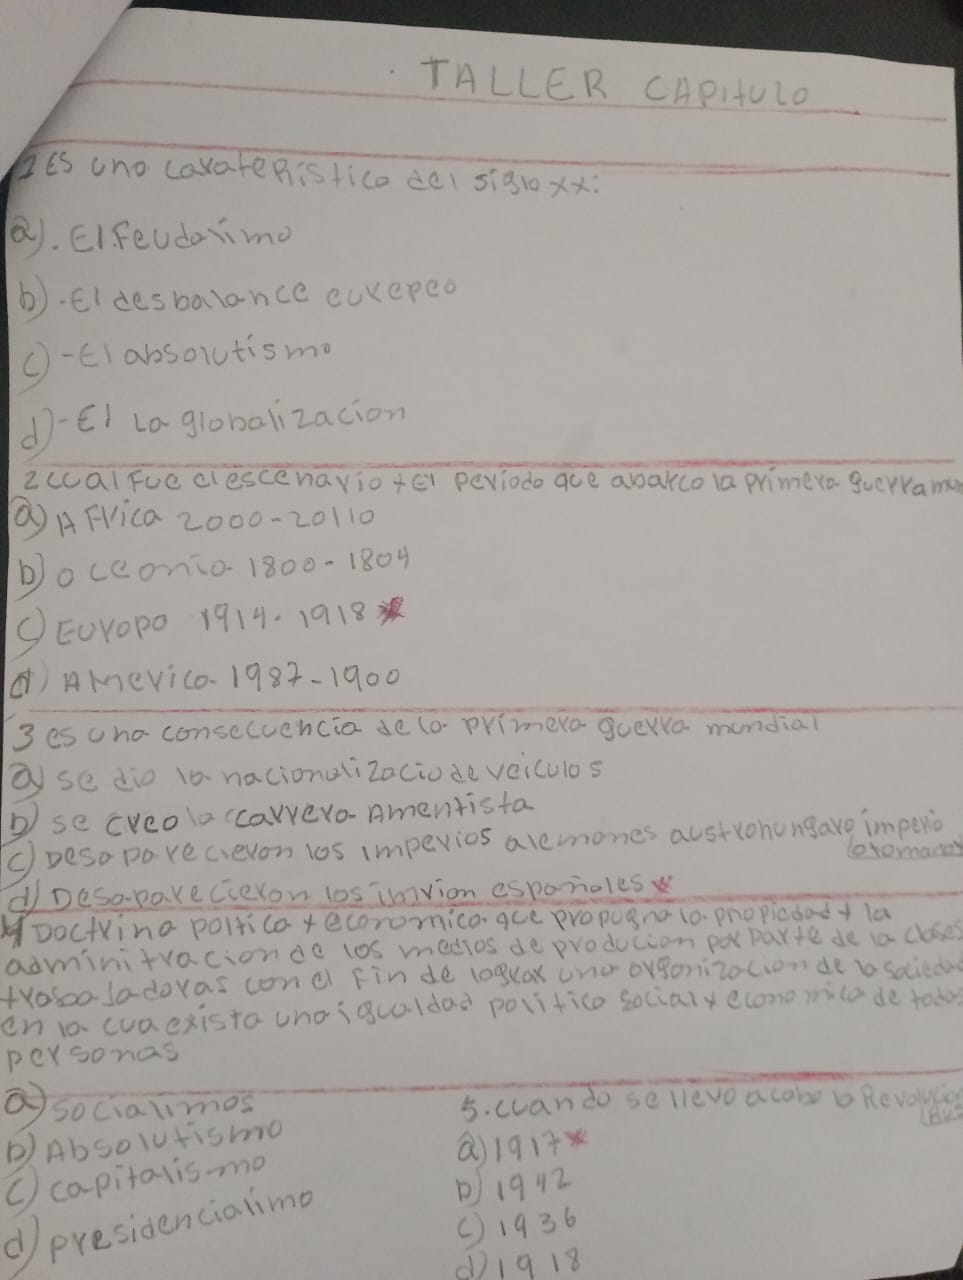 TALLER CAPITULO
1 ES uno caratepistico del siglo xx:
a). El Feudalimo
b). El desbalance eurepeo
c) - El absolutismo
d) - El La globalizacion
2 cual Fue el escenario y El periodo que abarco la primera guerra mun
a) AFrica 2000-20110
b) occania 1800-1804
c) Europa 1914-1918
d) America 1987-1900
3 es una consecuencia de la primera guerra mundial
a) se dio la nacionalizacio de veiculos
b) se creo la carrera Amentista
c) Desaparecieron los imperios alemanes austrohungaro imperio
otomano
d) Desaparecieron los imrion españoles
4 Doctrina poltica y economica que propugna la propiedad y la
adminitracion de los medios de producion por parte de la clases
trabajadoras con el Fin de lograr una organizacion de la sociedad
en la cua exista una igualdad politica social y economica de todas
personas
a) socialimos
b) Absolutismo
c) capitalismo
d) presidencialimo
5. cuando se llevo a cabo la Revolucion
a) 1917
b) 1942
c) 1936
d) 1918